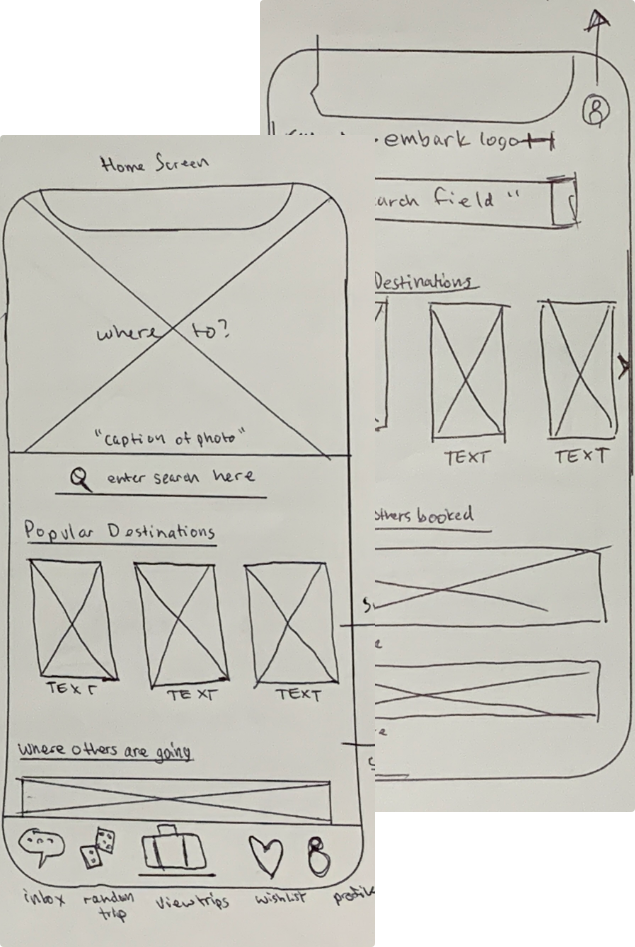 Home Screen
where to?
"caption of photo"
enter search here
Popular Destinations
TEXT
TEXT
TEXT
where others are going
inbox
random
trip
view trips
wishlist
embark logo
field "
Destinations
TEXT
TEXT
booked